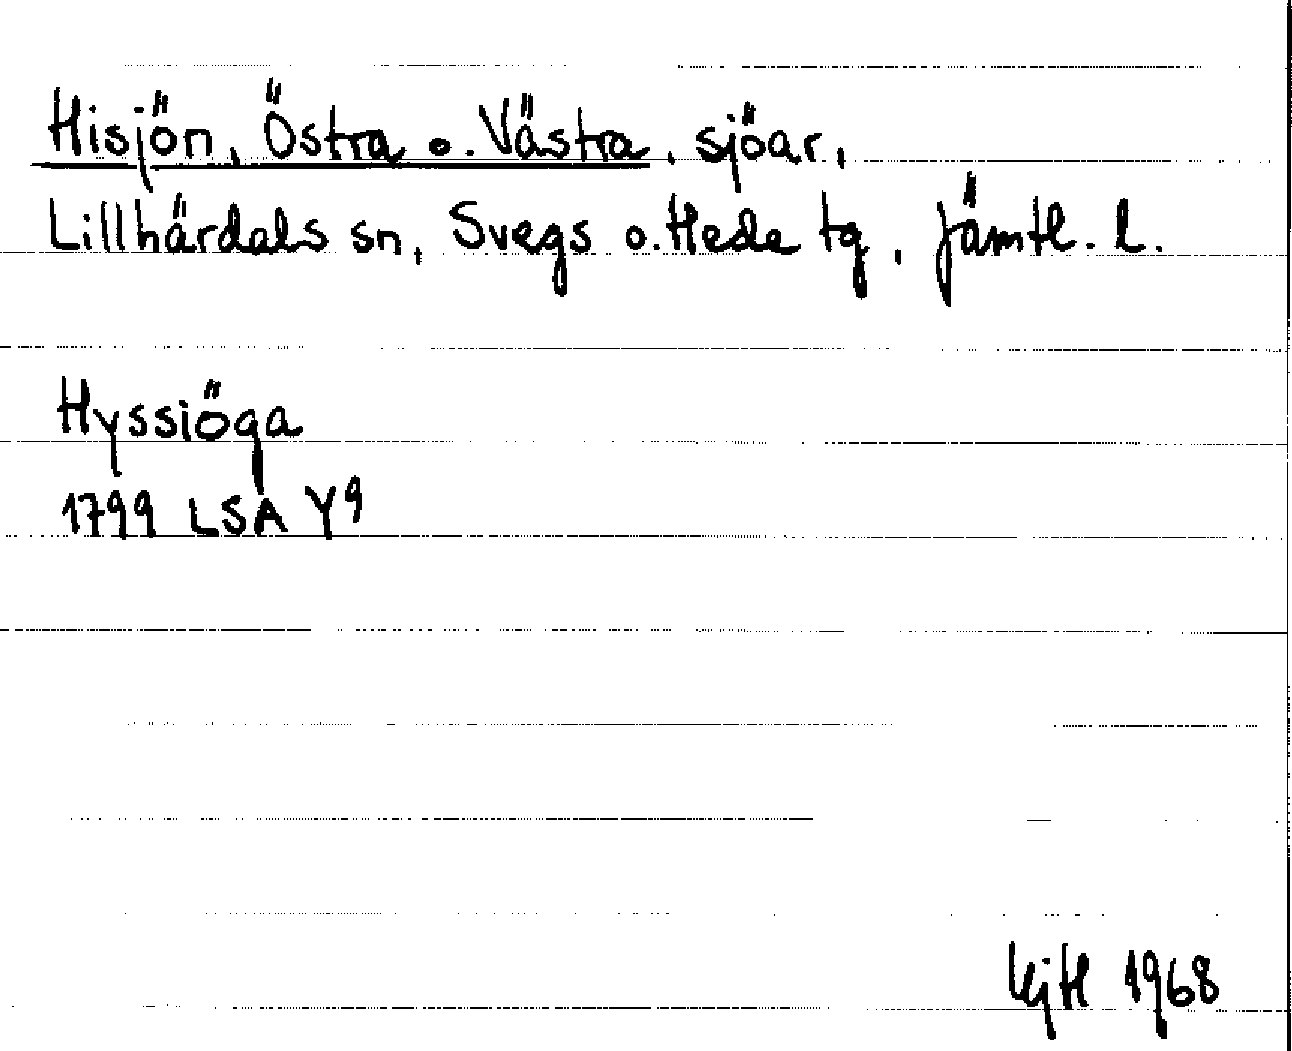 Hisjön, Östra o. Västra, sjöar,
Lillhärdals sn, Svegs o. Hede tg, Jämtl. l.
Hyssiöga
1799 LSA Y9
1968